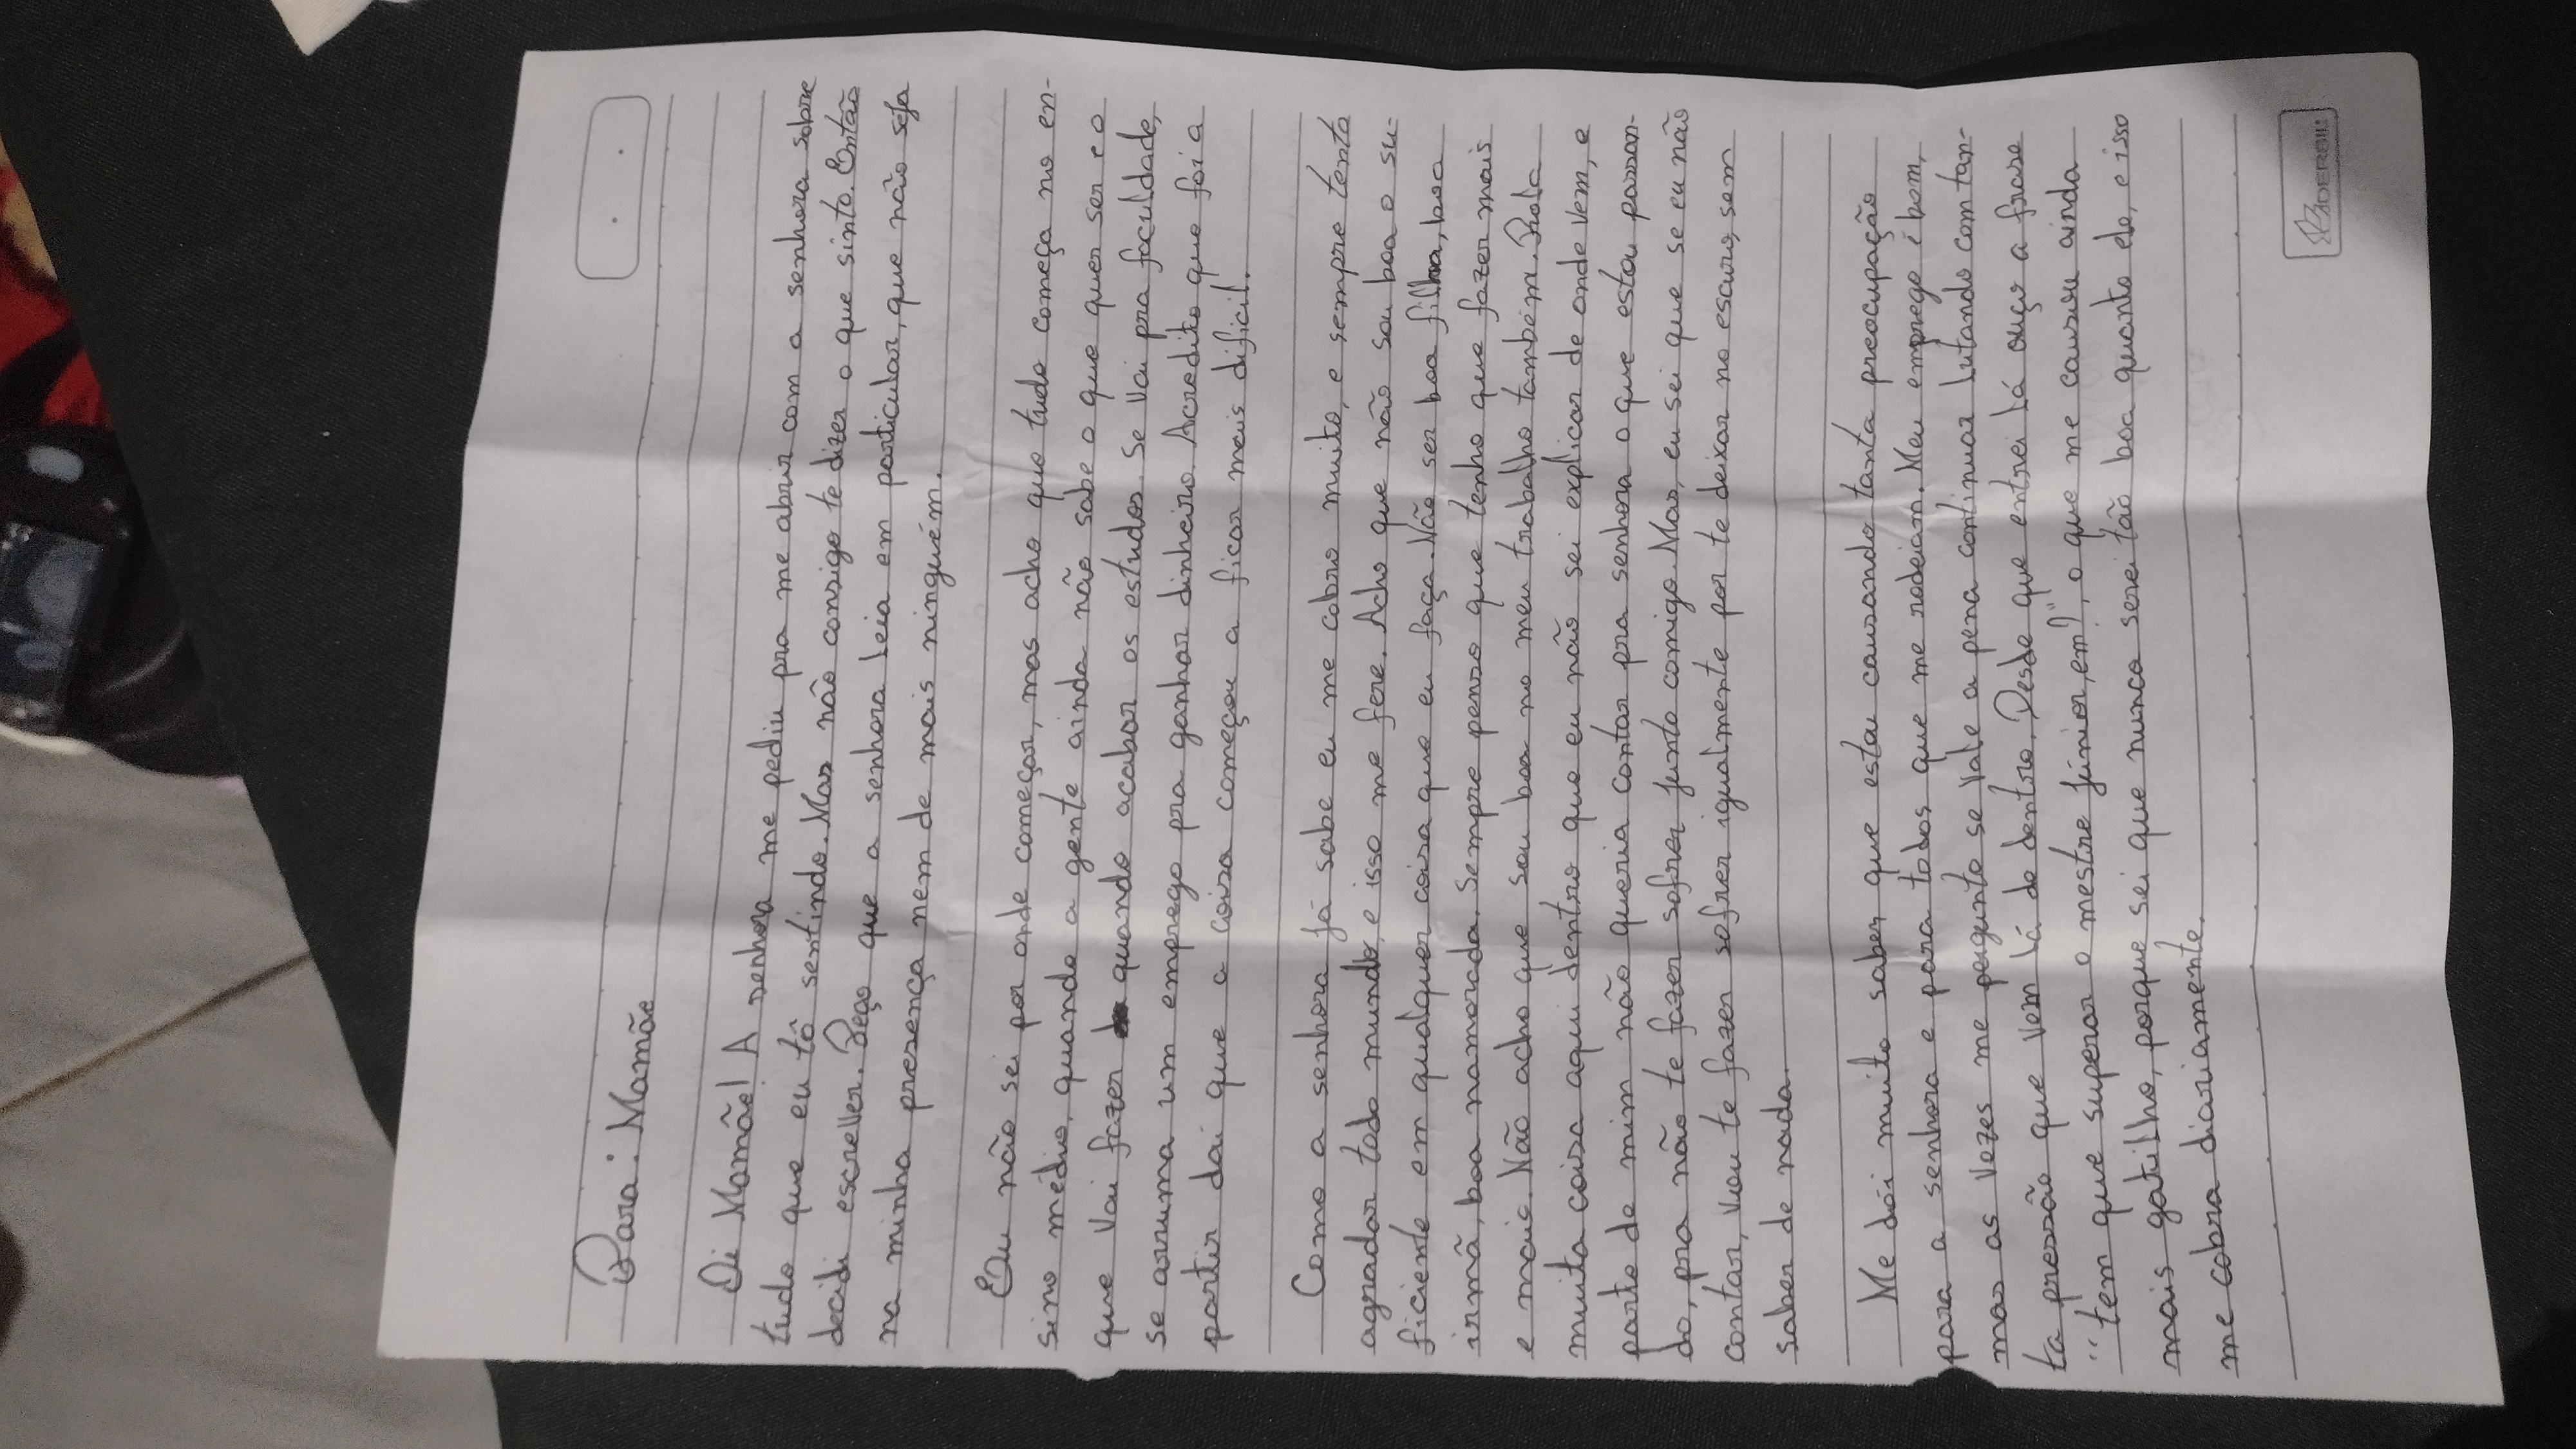 Para: Mamãe
Oi Mamãe! A senhora me pediu pra me abrir com a senhora sobre
tudo que eu tô sentindo. Mas não consigo te dizer o que sinto. Então
decidi escrever. Peço que a senhora leia em particular, que não seja
na minha presença nem de mais ninguém.
Eu não sei por onde começar, mas acho que tudo começa no en-
sino médio, quando a gente ainda não sabe o que quer ser e o
que vai fazer quando acabar os estudos. Se vai pra faculdade,
se arruma um emprego pra ganhar dinheiro. Acredito que foi a
partir daí que a coisa começou a ficar mais difícil.
Como a senhora já sabe eu me cobro muito, e sempre tento
agradar todo mundo, e isso me fere. Acho que não sou boa o su-
ficiente em qualquer coisa que eu faça. Não ser boa filha, boa
irmã, boa namorada. Sempre penso que tenho que fazer mais
e mais. Não acho que sou boa no meu trabalho também. Rola
muita coisa aqui dentro que eu não sei explicar de onde vem, e
parte de mim não queria contar pra senhora o que estou passan-
do, pra não te fazer sofrer junto comigo. Mas, eu sei que se eu não
contar, vou te fazer sofrer igualmente por te deixar no escuro, sem
saber de nada.
Me dói muito saber que estou causando tanta preocupação
para a senhora e para todos que me rodeiam. Meu emprego é bom,
mas as vezes me pergunto se vale a pena continuar lutando com tan-
ta pressão que vem lá de dentro. Desde que entrei lá ouço a frase
"tem que superar o mestre júnior, em?", o que me causou ainda
mais gatilho, porque sei que nunca serei tão boa quanto ele, e isso
me cobra diariamente.